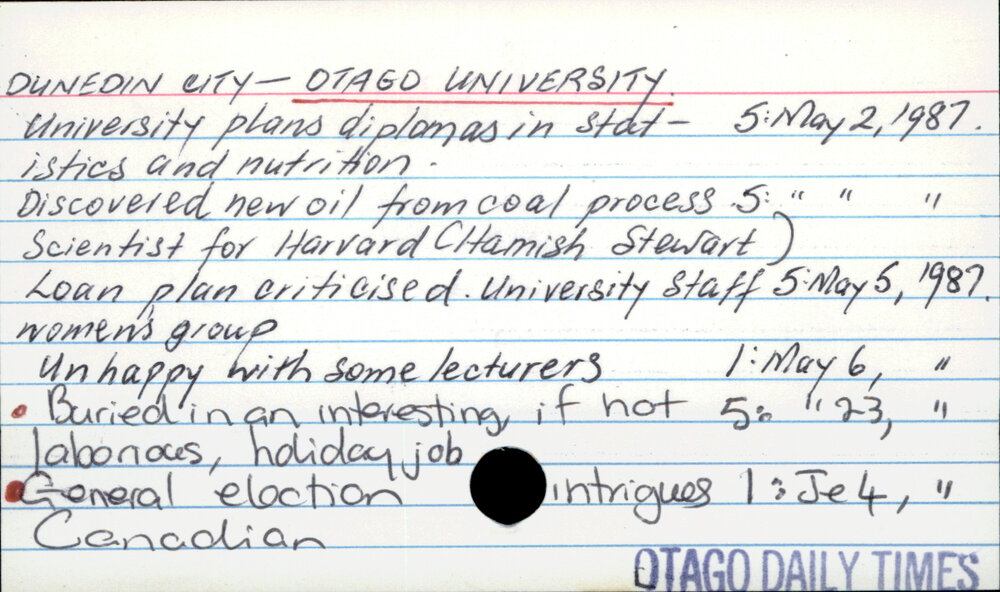 DUNEDIN CITY — OTAGO UNIVERSITY.
University plans diplomas in stat- 5: May 2, 1987.
istics and nutrition.
Discovered new oil from coal process 5: " " "
Scientist for Harvard (Hamish Stewart)
Loan plan criticised. University Staff 5: May 5, 1987.
women's group
Unhappy with some lecturers 1: May 6, "
Buried in an interesting, if not 5: " 23, "
laborious, holiday job
General election intrigues 1: Je 4, "
Canadian
OTAGO DAILY TIMES